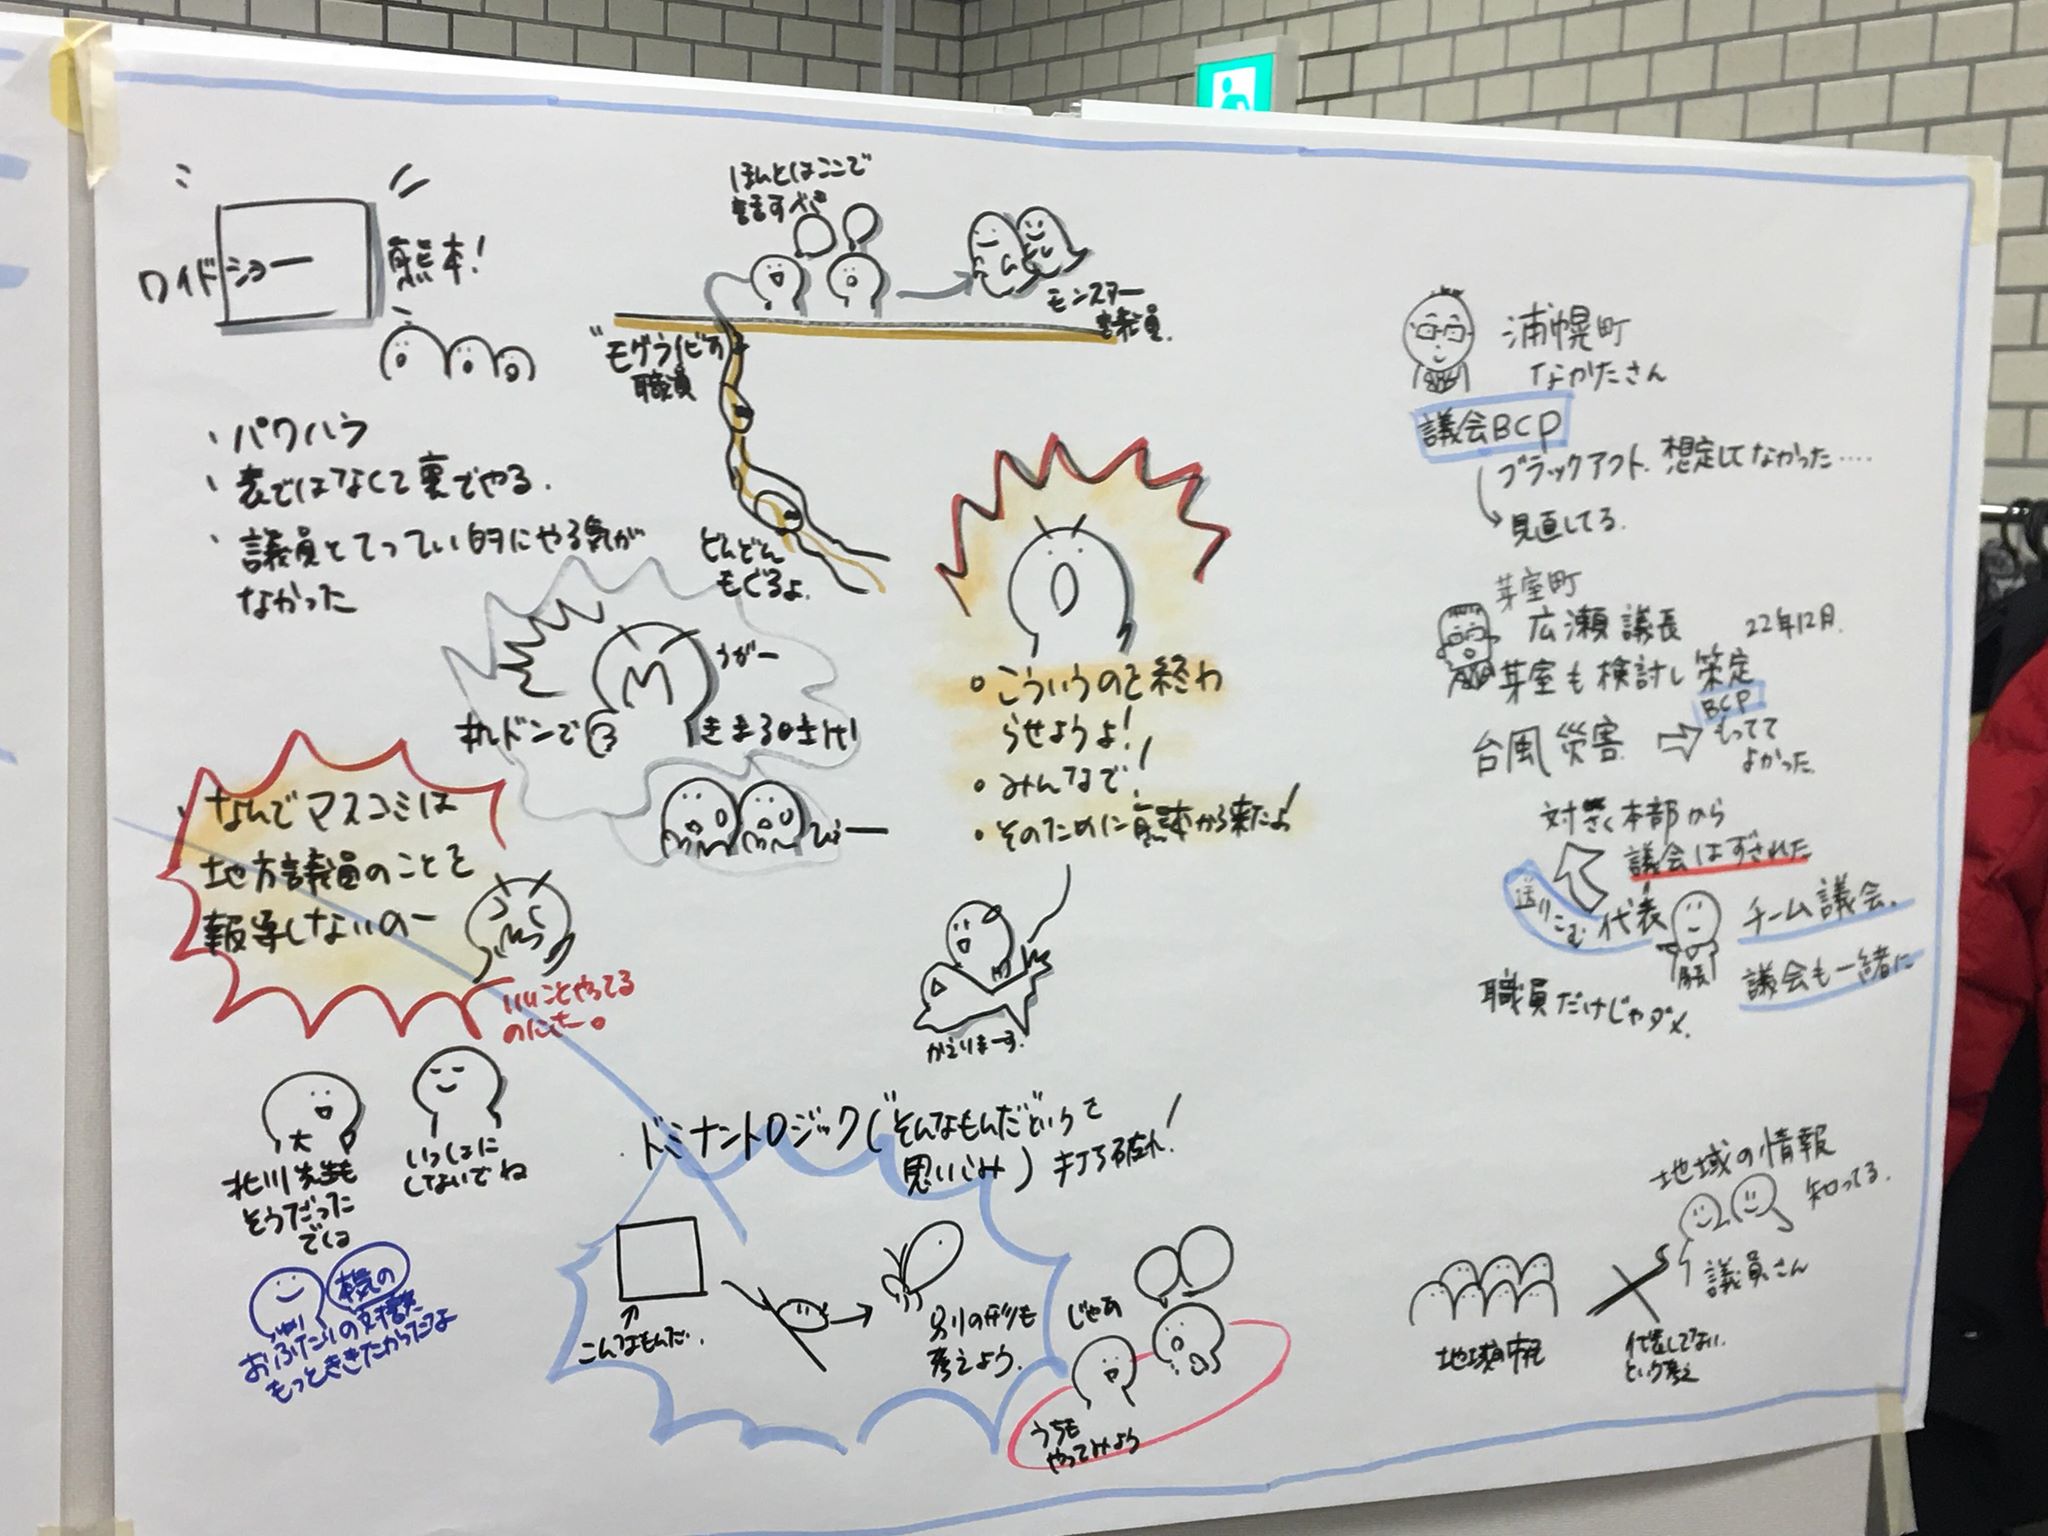 ワイドショー
熊本！
・パワハラ
・表ではなくて裏でやる．
・議員とてってい的にやる気が
なかった
ほんとはここで
話すべき
モンスター
議員．
"モグライ化"の
職員
どんどん
もぐるよ．
うがー
きまる時代！
ひぇー
・こういうのを終わ
らせようよ！
・みんなで！
・そのために熊本から来たよ！
かえりまーす．
なんでマスコミは
地方議員のことを
報道しないのー
いいことやってる
のにさー。
北川先生も
そうだった
では
いっしょに
しないでね
本気の
おふたりの対談
もっとききたかったよ
ドミナントロジック（"そんなもんだ"という
思いこみ）打ち破れ！
こんなもんだ．
別の形も
考えよう．
じゃあ
うちも
やってみよう
浦幌町
なかたさん
議会BCP
ブラックアウト．想定してなかった‥‥
見直してる．
芽室町
広瀬議長
22年12月．
芽室も検討し策定
BCP
台風災害
もってて
よかった
対さく本部から
議会はずされた
送りこむ
代表
チーム議会．
議会も一緒に
職員だけじゃダメ．
地域の情報
知ってる．
議員さん
地域の市民
代表してない．
という考え